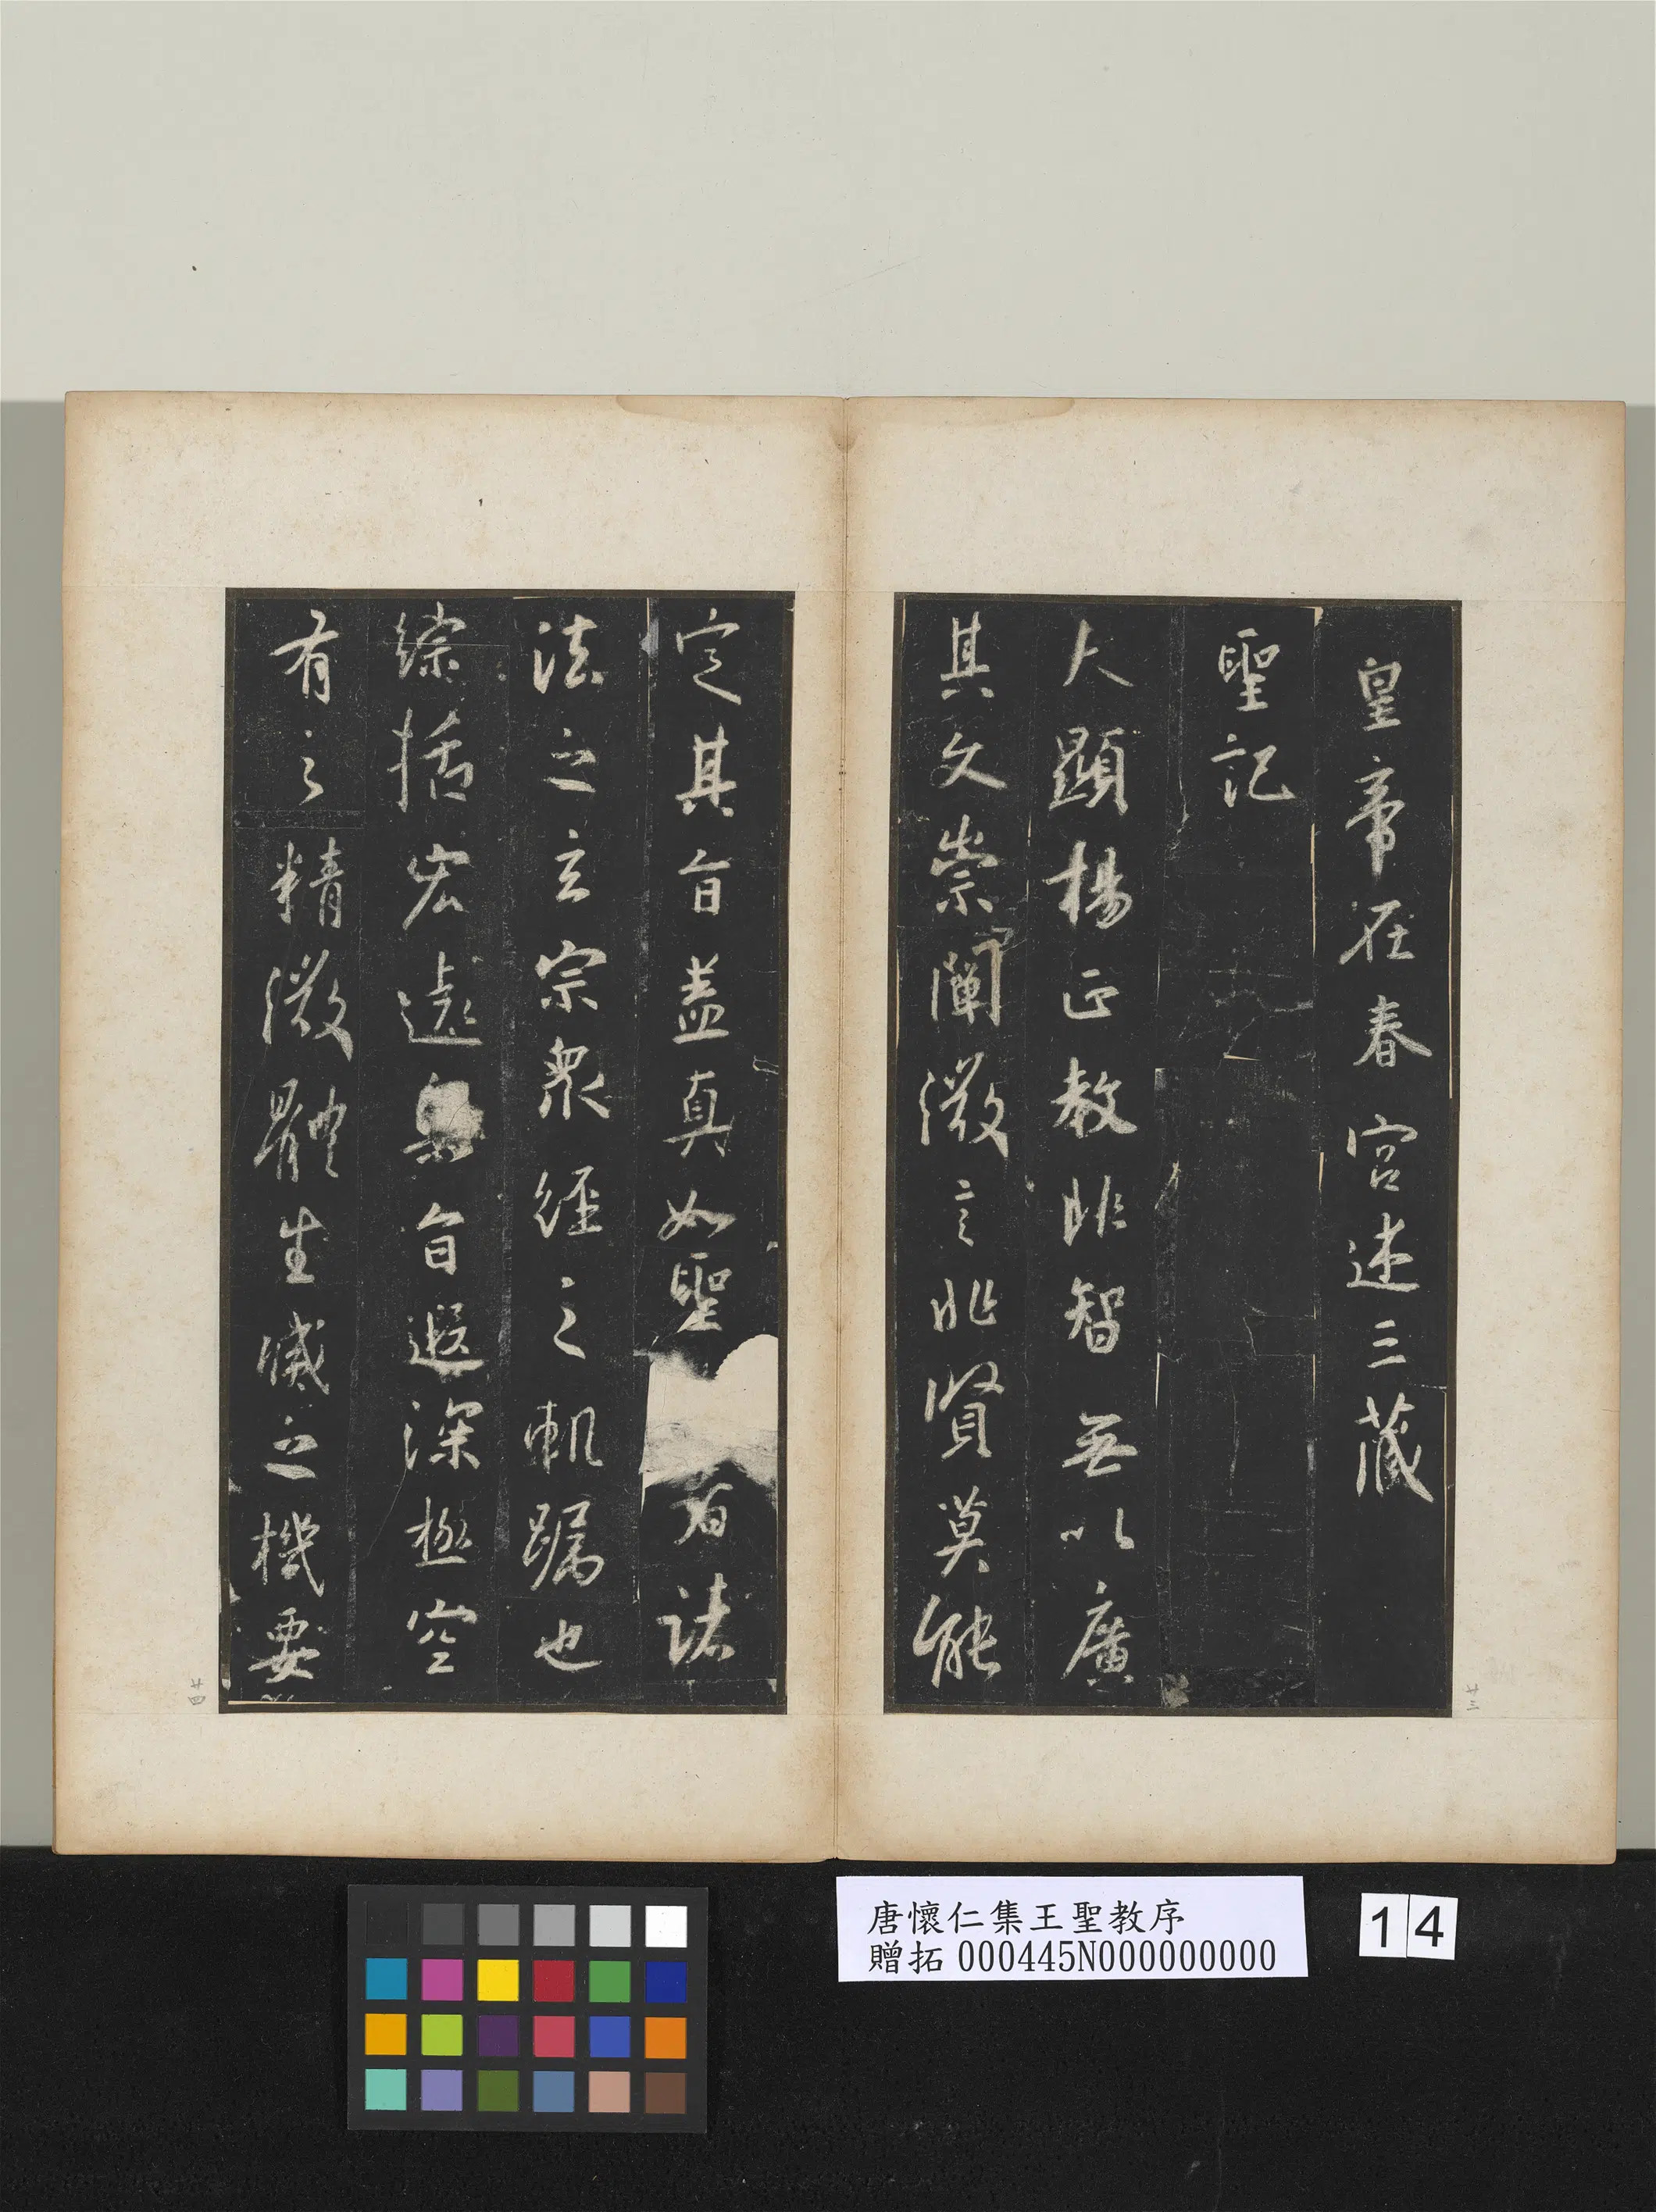 皇帝在春宮述三藏
聖記
夫顯揚正教非智無以廣
其文崇闡微言非賢莫能
定其旨蓋真如聖
者諸
法之玄宗衆經之軌躅也
綜括宏遠奧旨遐深極空
有之精微體生滅之機要
廿三
廿四
唐懷仁集王聖教序
贈拓 000445N000000000
14